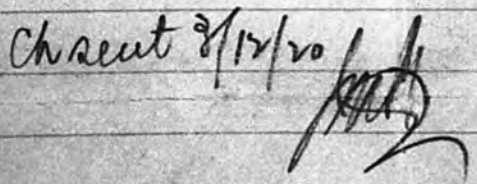 Ch sent 3/12/20